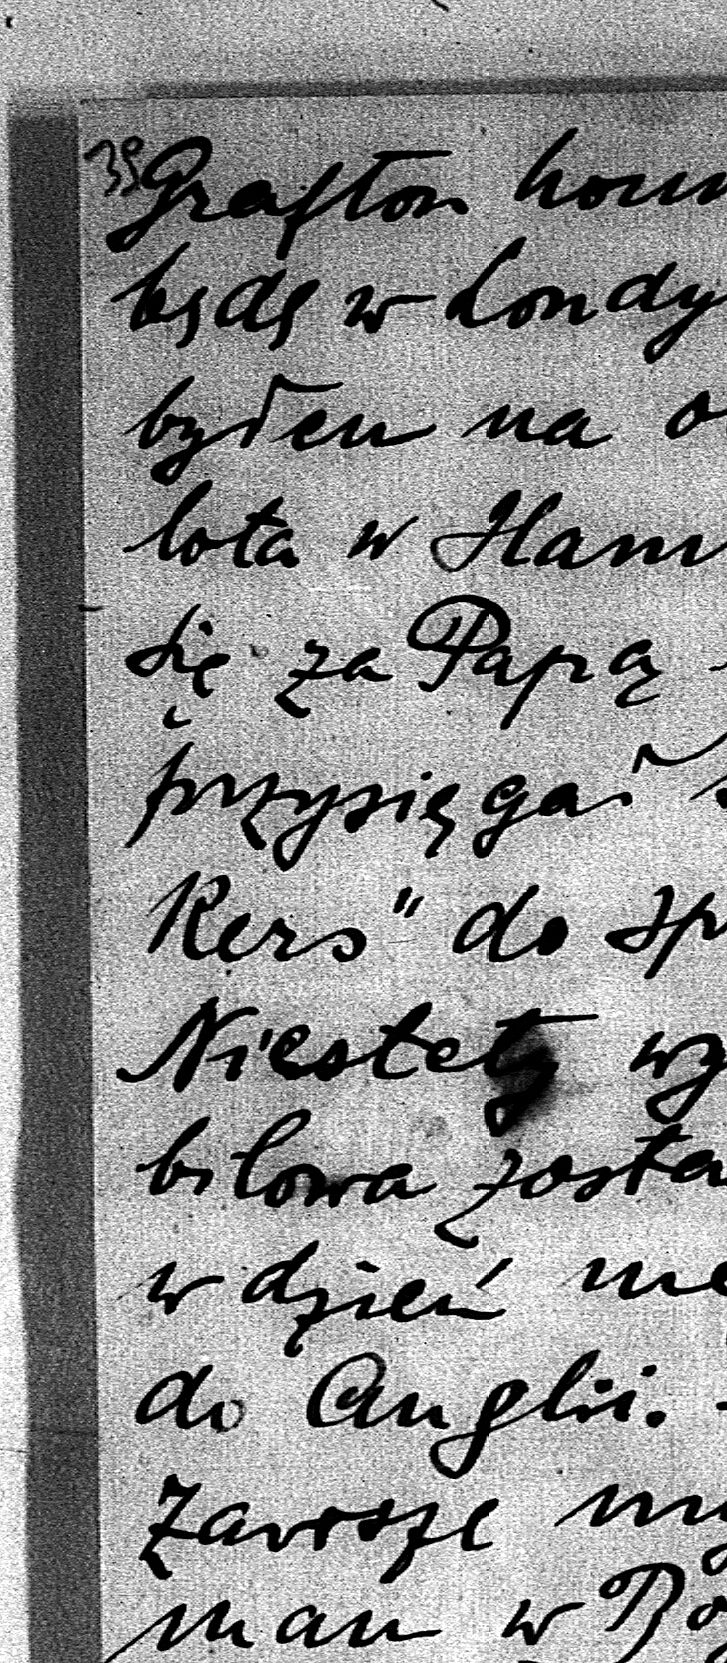 39 Grafton hou
będę w Londy
byłem na o
lota w Ham
się za Papą
przysięgać
Kers" do sp
Niestety wy
bilowa zosta
w dzień me
do Anglii.
Zawsze my
man w Bo